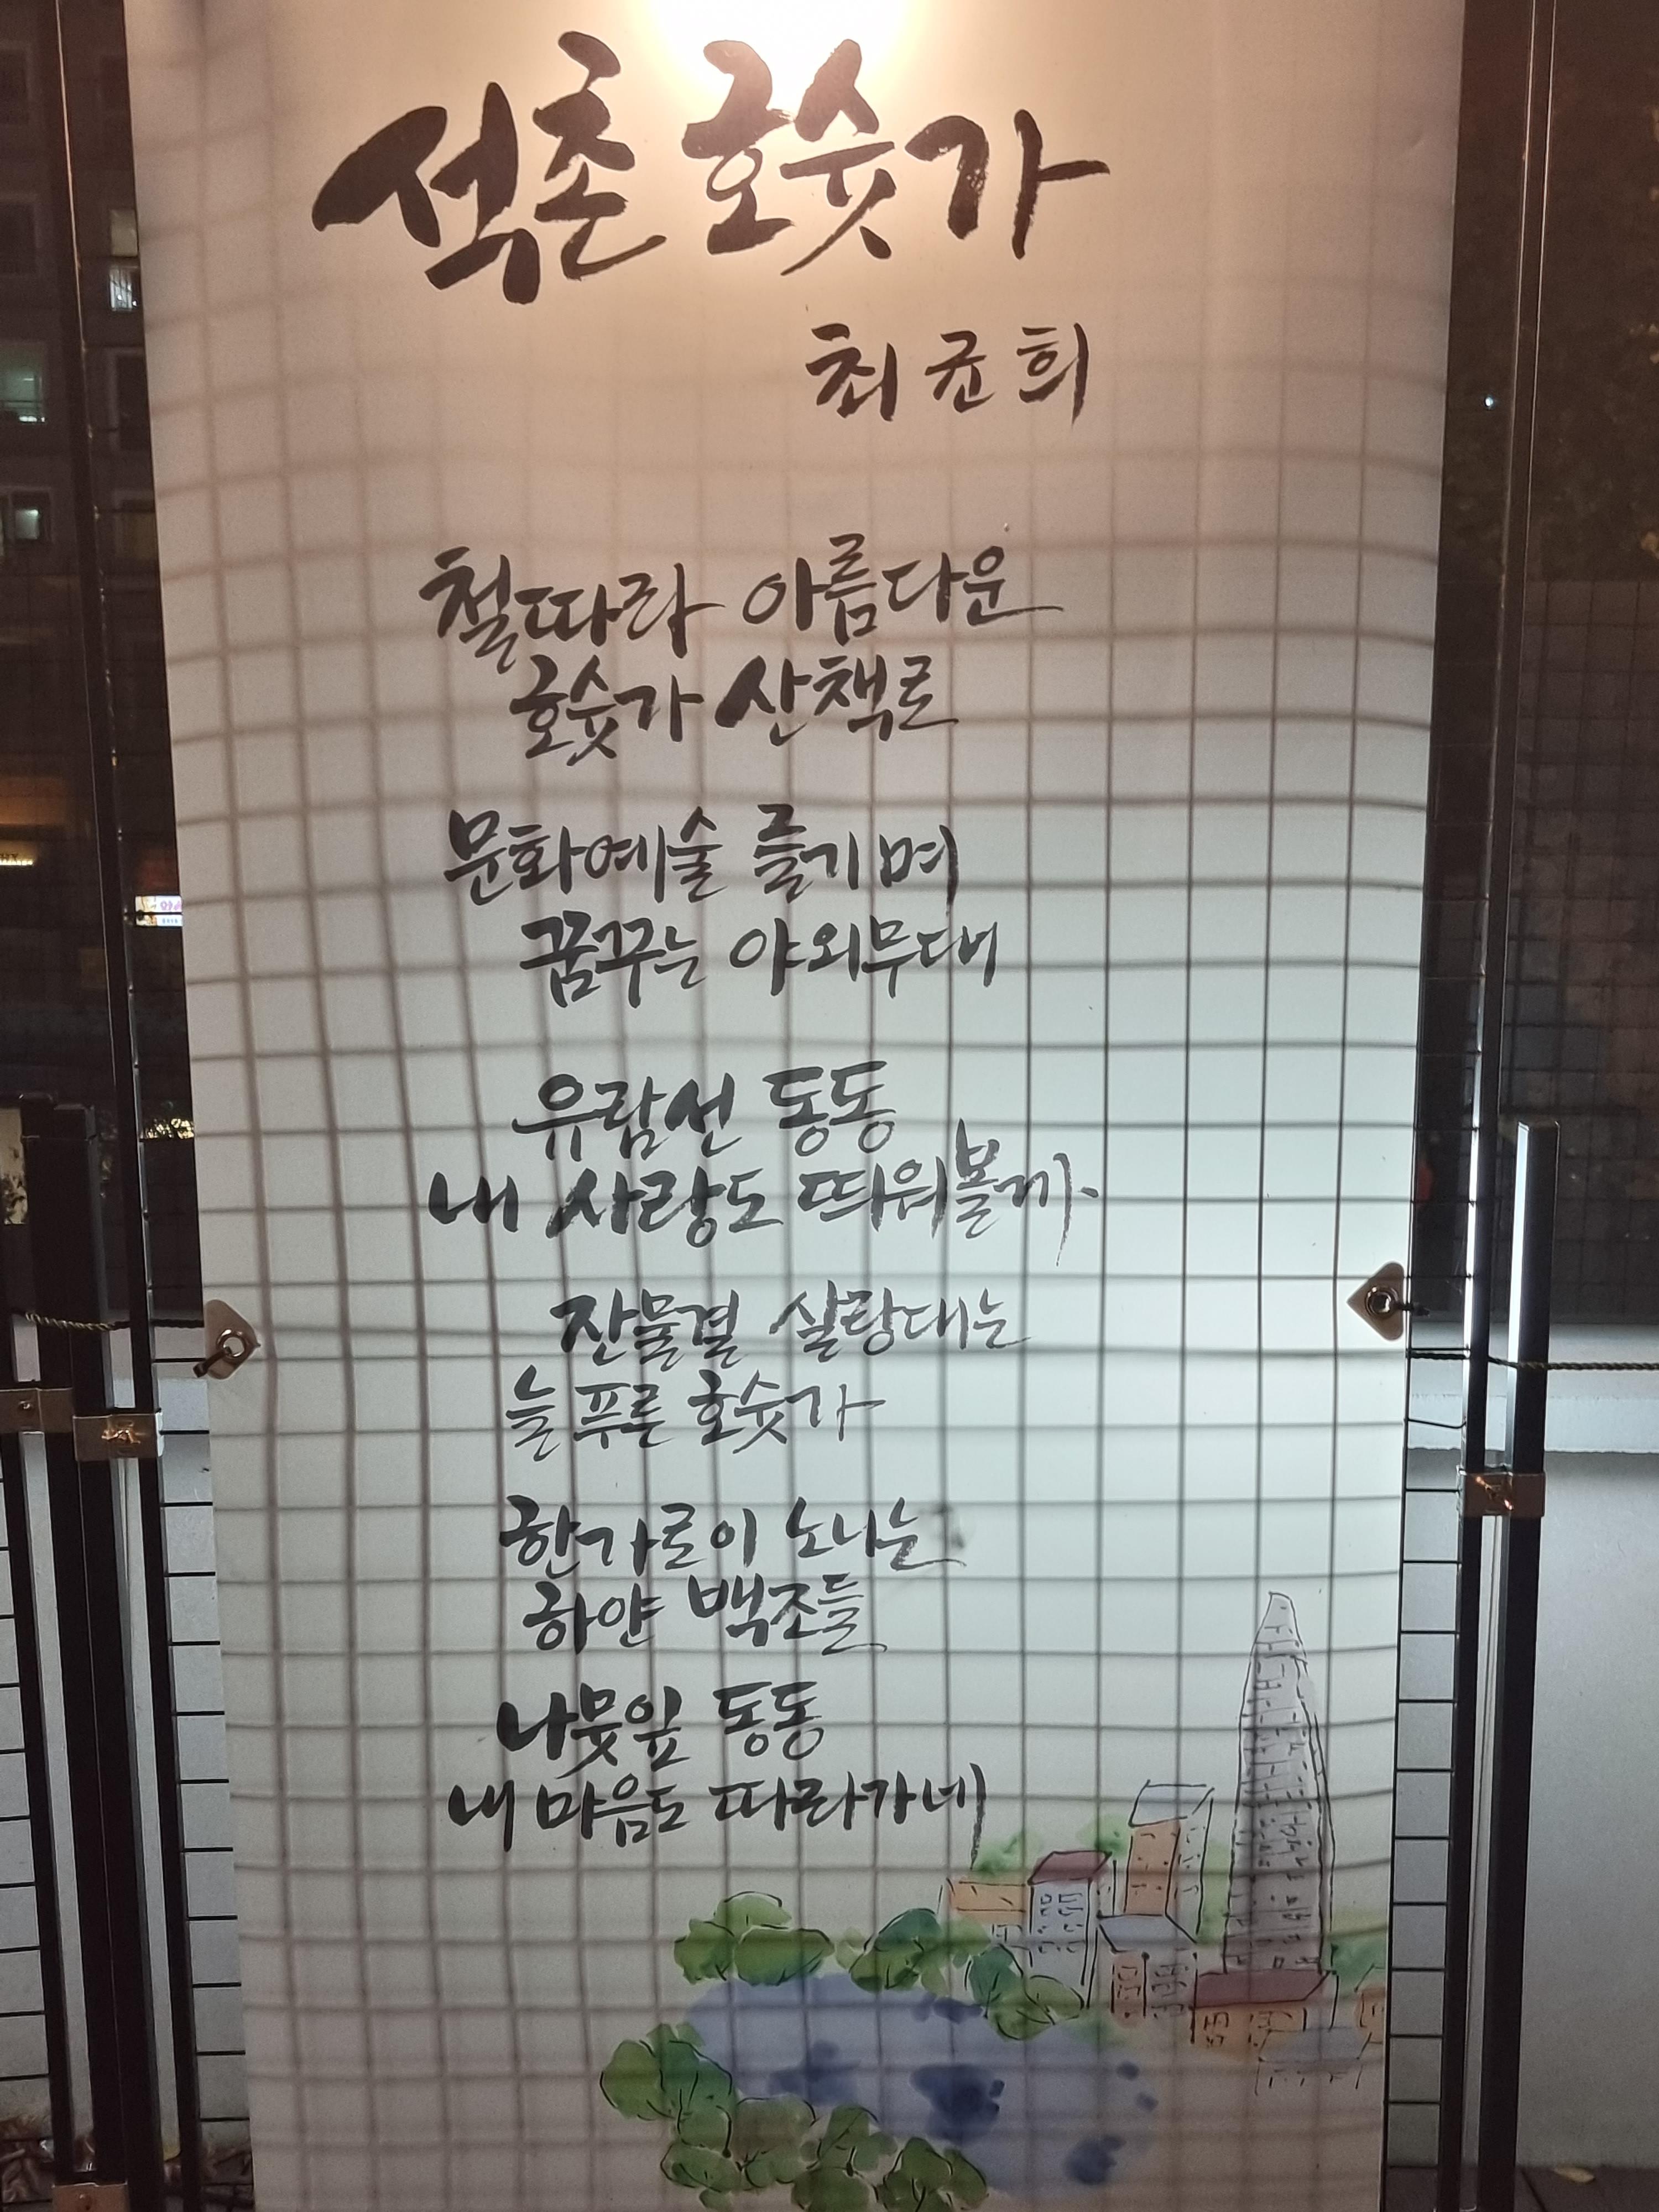 석촌 호숫가
최균희
철따라 아름다운
호숫가 산책로
문화예술 즐기며
꿈꾸는 야외무대
유람선 동동
내 사랑도 띄워볼까
잔물결 살랑대는
늘 푸른 호숫가
한가로이 노니는
하얀 백조들
나뭇잎 동동
내 마음도 따라가네